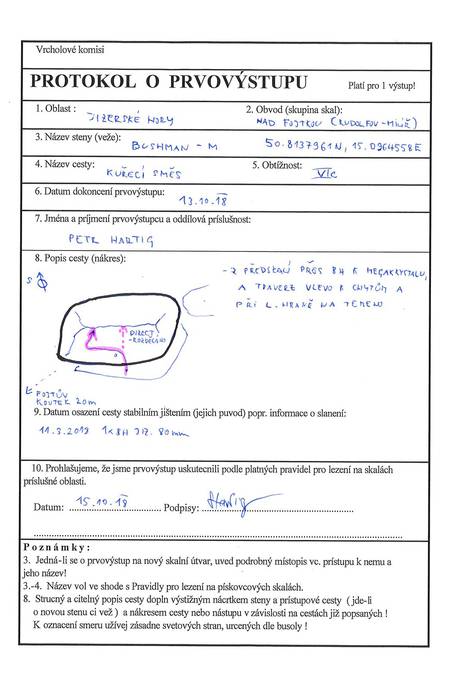 Vrcholové komisi
PROTOKOL O PRVOVÝSTUPU Platí pro 1 výstup!
1. Oblast :
JIZERSKÉ HORY
2. Obvod (skupina skal):
NAD FOJTKOU (RUDOLFOV-MLÝNĚ)
3. Název steny (veže):
BUSHMAN - M 50.8137961N, 15.0964558E
4. Název cesty:
KUŘECÍ SMĚS
5. Obtížnost:
VIc
6. Datum dokoncení prvovýstupu:
13.10.18
7. Jména a príjmení prvovýstupcu a oddílová príslušnost:
PETR HARTIG
8. Popis cesty (nákres):
S
- Z PŘEDSKALÍ PŘES BH K MEGAKRYSTALU,
A TRAVERZ VLEVO K CHYTŮM A
PŘI L. HRANĚ NA TEMENO
DIRECT
- ROZDĚLÁNO
FOJTŮV
KOUTEK 20m
9. Datum osazení cesty stabilním jištením (jejich puvod) popr. informace o slanení:
11.3.2019 1x BH JIZ. 80mm
10. Prohlašujeme, že jsme prvovýstup uskutecnili podle platných pravidel pro lezení na skalách
príslušné oblasti.
Datum: 15.10.18 Podpisy: Hartig
P o z n á m k y :
3. Jedná-li se o prvovýstup na nový skalní útvar, uved podrobný místopis vc. prístupu k nemu a
jeho název!
3.-4. Název vol ve shode s Pravidly pro lezení na pískovcových skalách.
8. Strucný a citelný popis cesty dopln výstižným nácrtkem steny a prístupové cesty ( jde-li
o novou stenu ci vež ) a nákresem cesty nebo nástupu v závislosti na cestách již popsaných !
K oznacení smeru užívej zásadne svetových stran, urcených dle busoly !